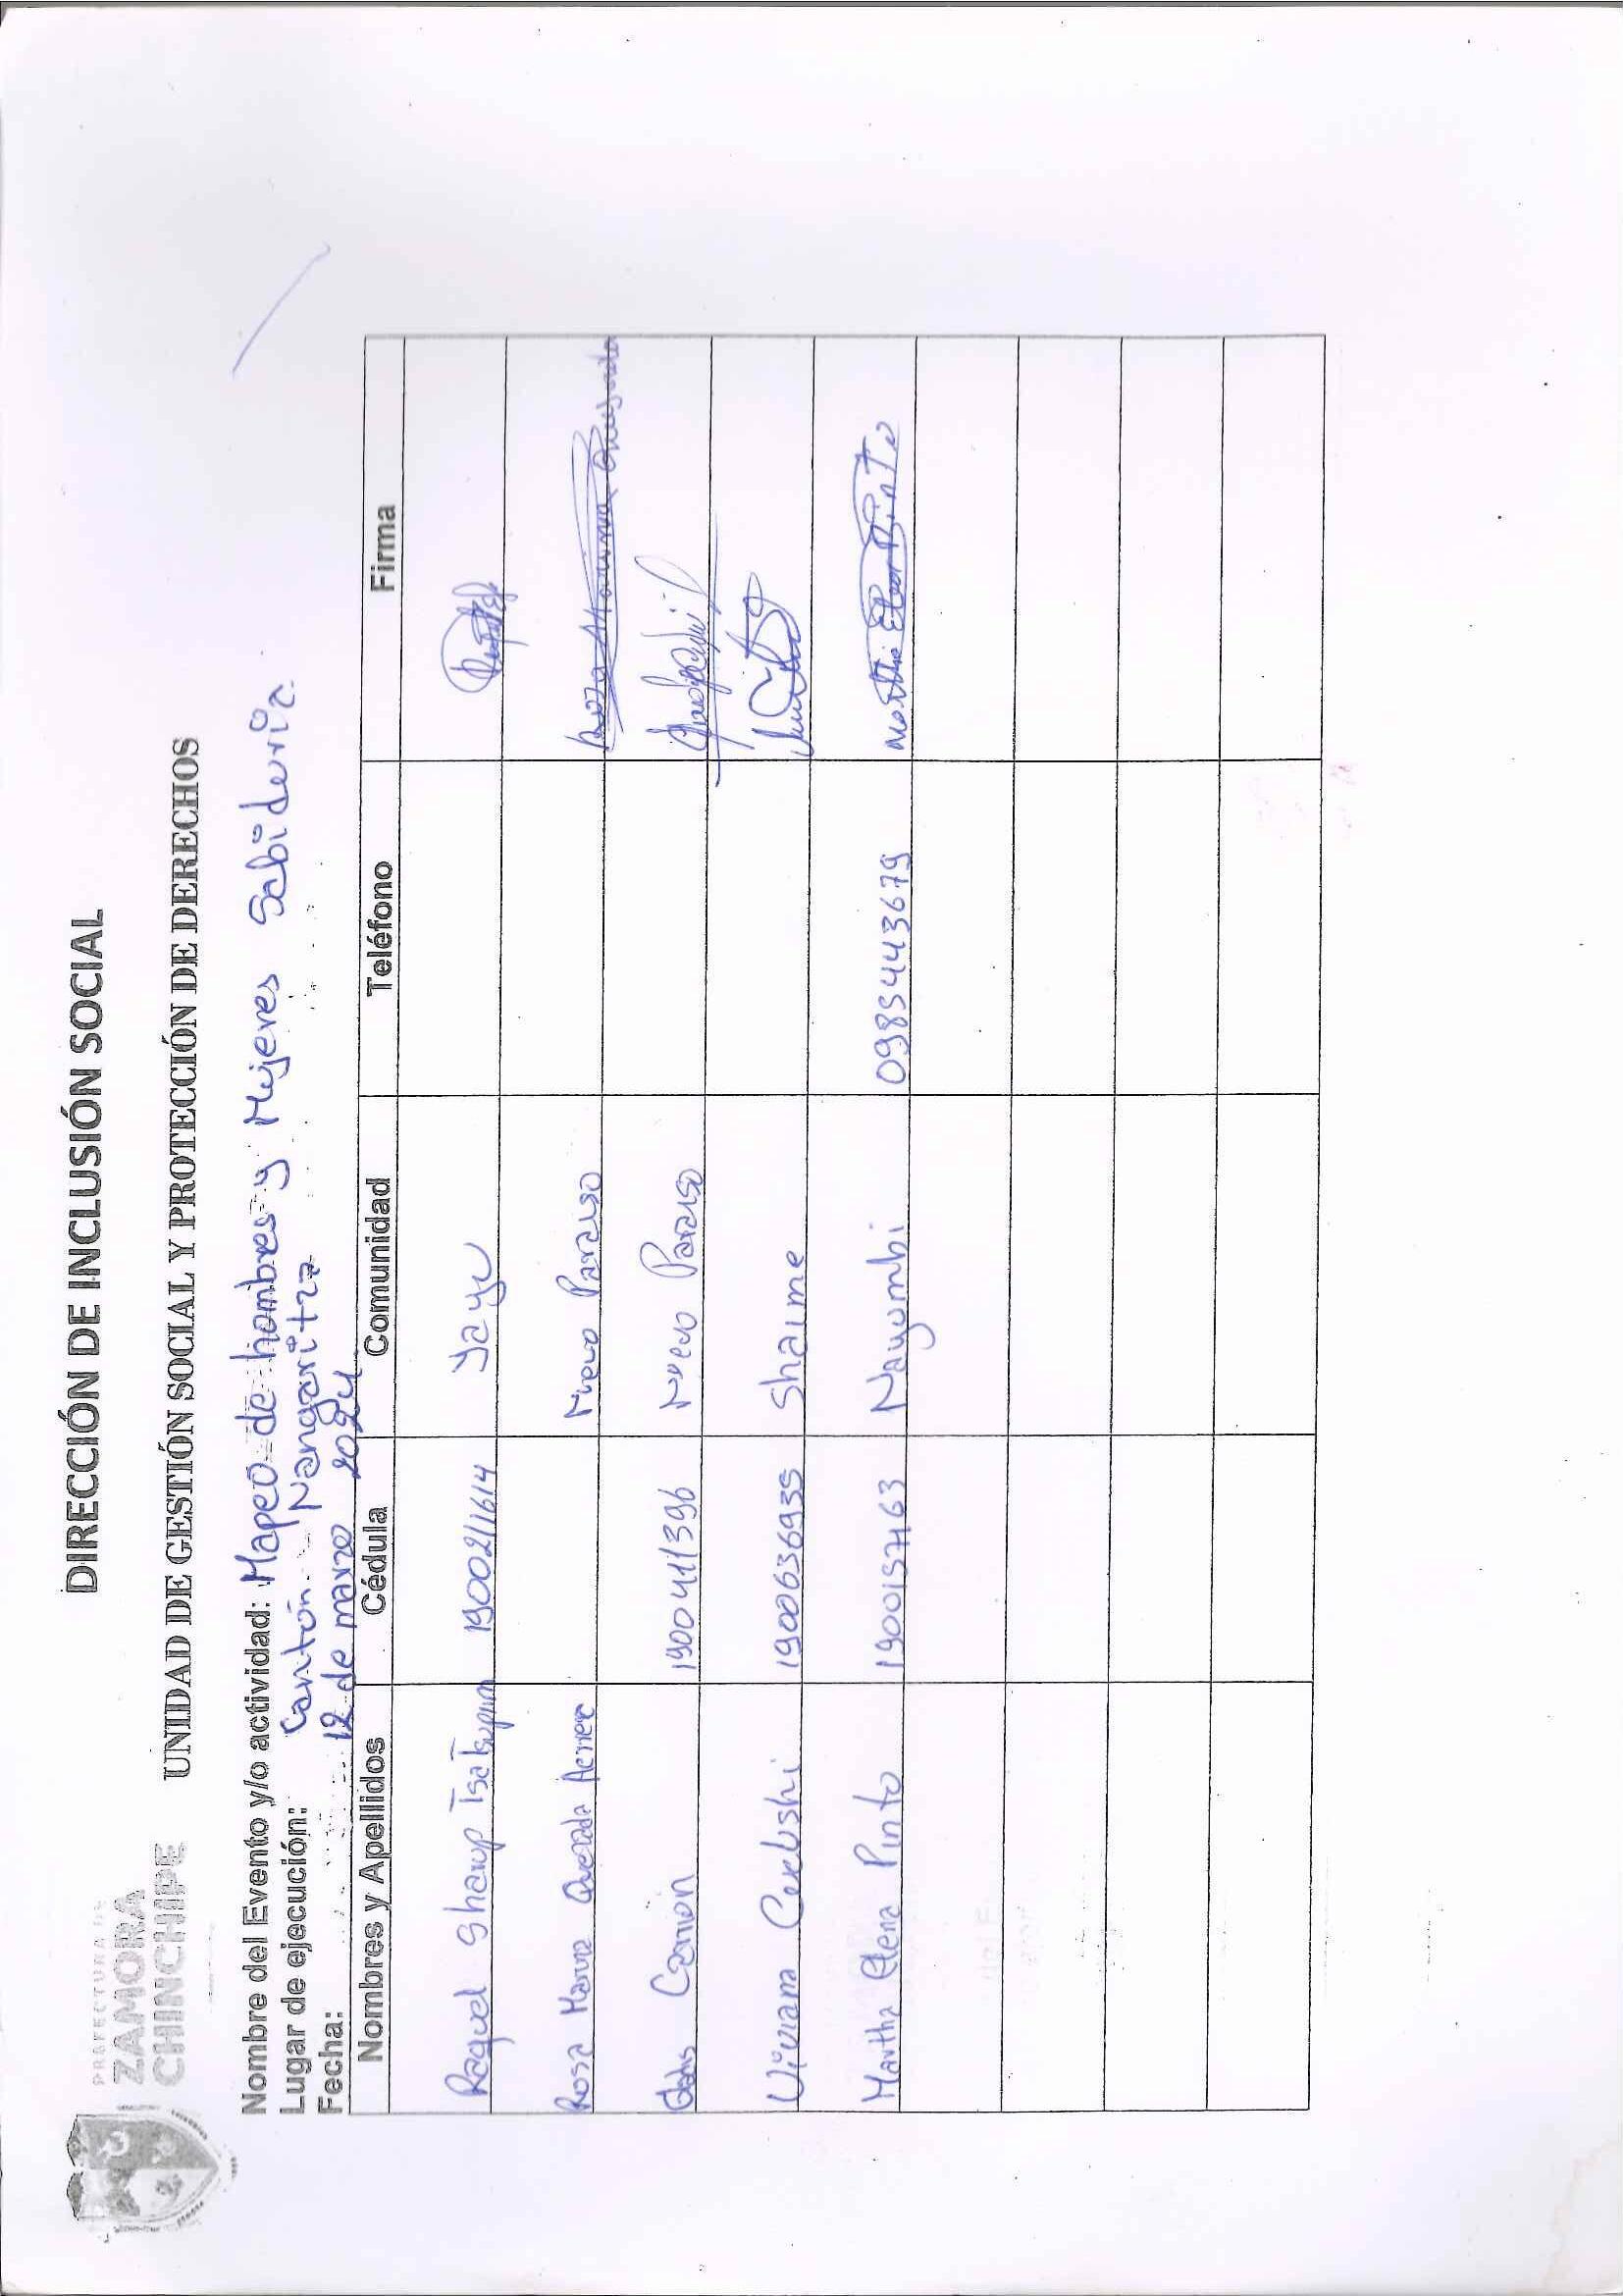 DIRECCIÓN DE INCLUSIÓN SOCIAL
PREFECTURA DE
ZAMORA
CHINCHIPE
UNIDAD DE GESTIÓN SOCIAL Y PROTECCIÓN DE DERECHOS
Nombre del Evento y/o actividad: Mapeo de hombres y Mujeres Sabiduria
Lugar de ejecución: Cantón Nangaritza
Fecha: 12 de marzo 2024
Nombres y Apellidos Cédula Comunidad Teléfono Firma
Raquel Sharup 1900211614 Yayu
Rosa Quezada Nuevo Paraiso
Carrion 1900411396 Nuevo Paraiso
Viviana 1900636935 Shaime
Martha Elena Pinto Nayumbi Martha Elena Pinto